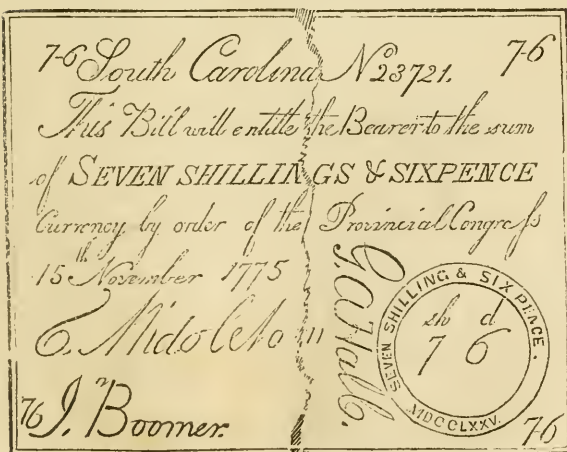 7-6 South Carolina No 23721. 7-6
This Bill will entitle the Bearer to the sum
of SEVEN SHILLINGS & SIXPENCE
Currency by order of the Provincial Congress
15th November 1775
SEVEN SHILLING & SIX PENCE.
sh d
7 6
MDCCLXXV.
76 J. Boomer. 7-6